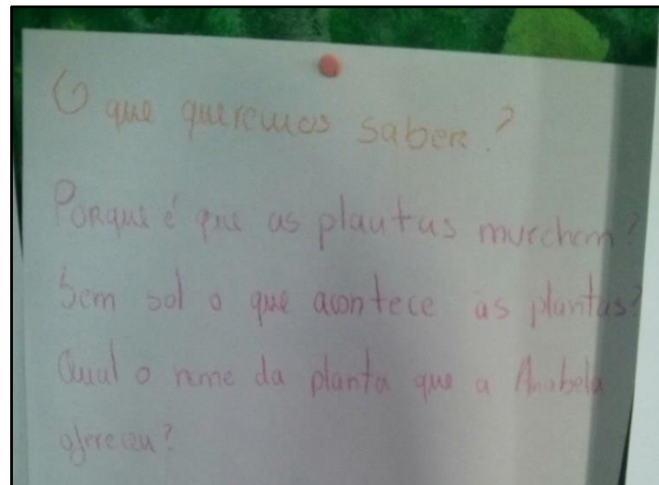 O que queremos saber?
Porque é que as plantas murcham?
Sem sol o que acontece às plantas?
Qual o nome da planta que a Anabela
ofereceu?